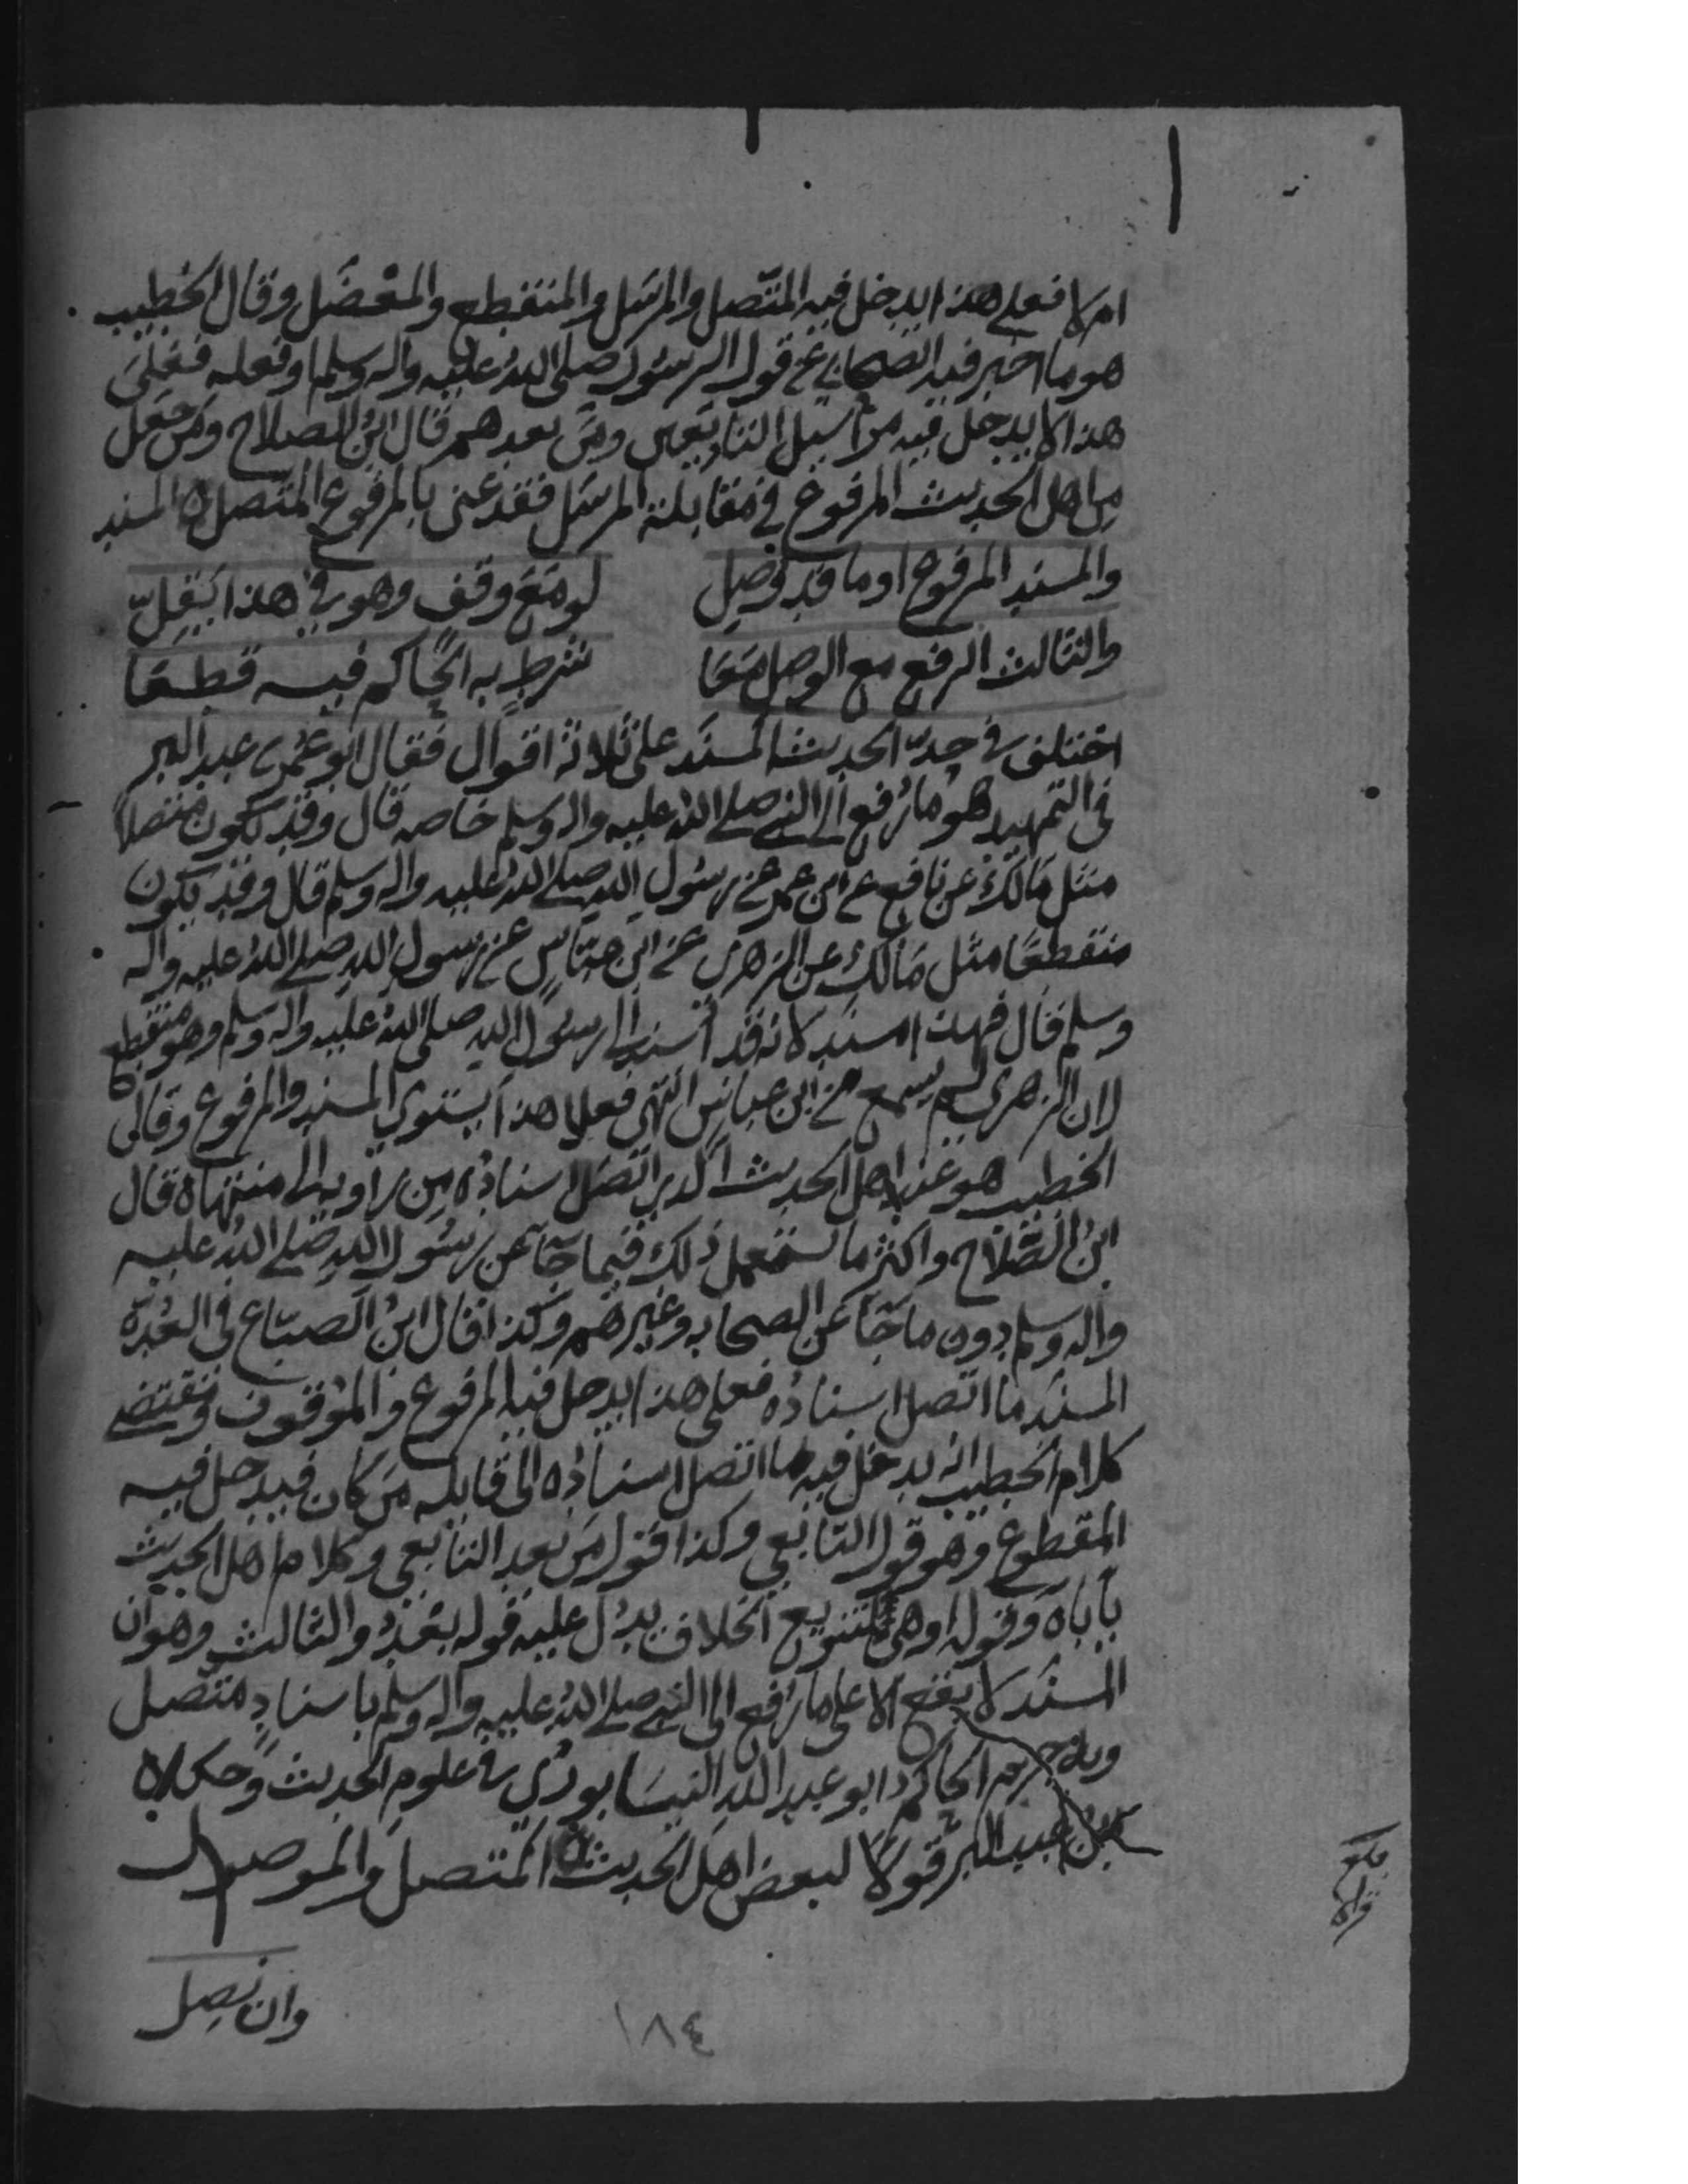 ام لا فعلى هذا يدخل فيه المتّصل والمرسل والمنقطع والمعْضَل وقال الخطيب
هو ما اخبر فيه الصحابي عن قول الرسول صلى الله عليه واله وسلم او فعله فعلى
هذا لا يدخل فيه مراسيل التابعين ومن بعدهم قال ابن الصلاح ومن جعل
من اهل الحديث المرفوع في مقابلة المرسل فقد عنى بالمرفوع المتصل ه المسند
والمسند المرفوع او ما قد وُصِل لو مَعَ وقف وهو في هذا يَقِلّ
والثالث الرفع مع الوصل مَعَا شرط به الحاكم فيه قطعَا
اختلف في حدّ الحديث المسنَد على ثلاثة اقوال فقال ابو عُمر بن عبد البر
في التمهيد هو ما رُفع الى النبي صلى الله عليه واله وسلم خاصه قال وقد يكون متصلاً
مثل مَالك عن نافع عن ابن عمر عن رسول الله صلى الله عليه واله وسلم قال وقد يكون
منقطعًا مثل مَالك عن الزهري عن ابن عبّاسٍ عن رسول الله صلى الله عليه واله
وسلم قال فهذا مسند لانه قد اُسند الى رسول الله صلى الله عليه واله وسلم وهو منقطع
لان الزهري لم يسمع من ابن عباس انتهى فعلا هذا يستوي المسند والمرفوع وقال
الخطيب هو عند اهل الحديث الذي اتّصل اسنادُه مِن راويه الى منتهاه قال
ابنُ الصَّلاح واكثر ما يستعمل ذلك فيما جآ عن رسُول الله صلى الله عليه
واله وسلم دون ما جآ عن الصحابه وغيرهم وكذا قال ابنُ الصباغ في العُدّه
المسنَد ما اتصل اسنادُه فعلى هذا يدخل فيه المرفوع والموقوف ومقتضى
كلام الخطيب انه يدخل فيه ما اتصل اسنادُه الى قايله مَن كان فيدخل فيه
المقطوع وهو قول التابعي وكذا قول مَن بعد التابعي وكلام اهل الحديث
يأباه وقوله او هي لتنويع الخلاف يدُل عليه قوله بعْدُ والثالث وهو ان
المسنَد لا يقع الا على ما رُفع الى النبي صلى الله عليه واله وسلم باسنادٍ متصل
وبه جزم الحاكم ابو عبد الله النيسابوري في علوم الحديث وحكاه
ابن عبد البر قولاً لبعض اهل الحديث ه المتصل والموصول
وان تصِل
١٨٤